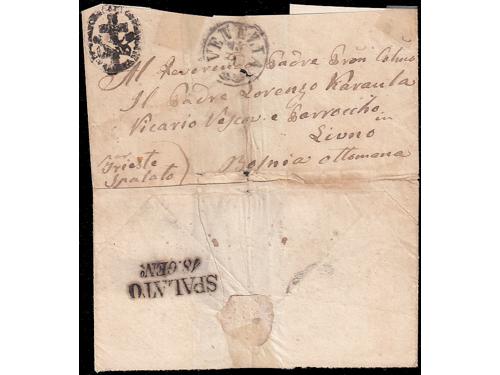 VENEZIA
Al Reverendo Padre Pron Colmo
Il Padre Lorenzo Karaula
Vicario Vesco. e Parrocho
in
Livno
Bosnia ottomana
per
Trieste
Spalato
SPALATO
18. GEN.º